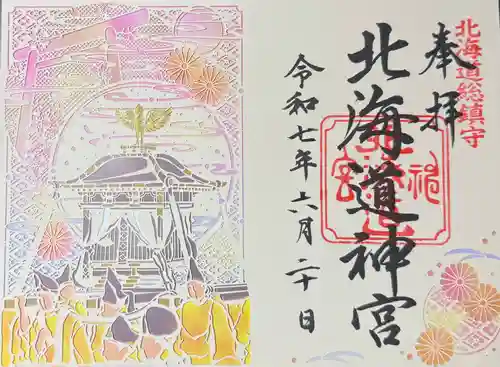 北海道総鎮守
奉拝
北海道神宮
令和七年六月二十日